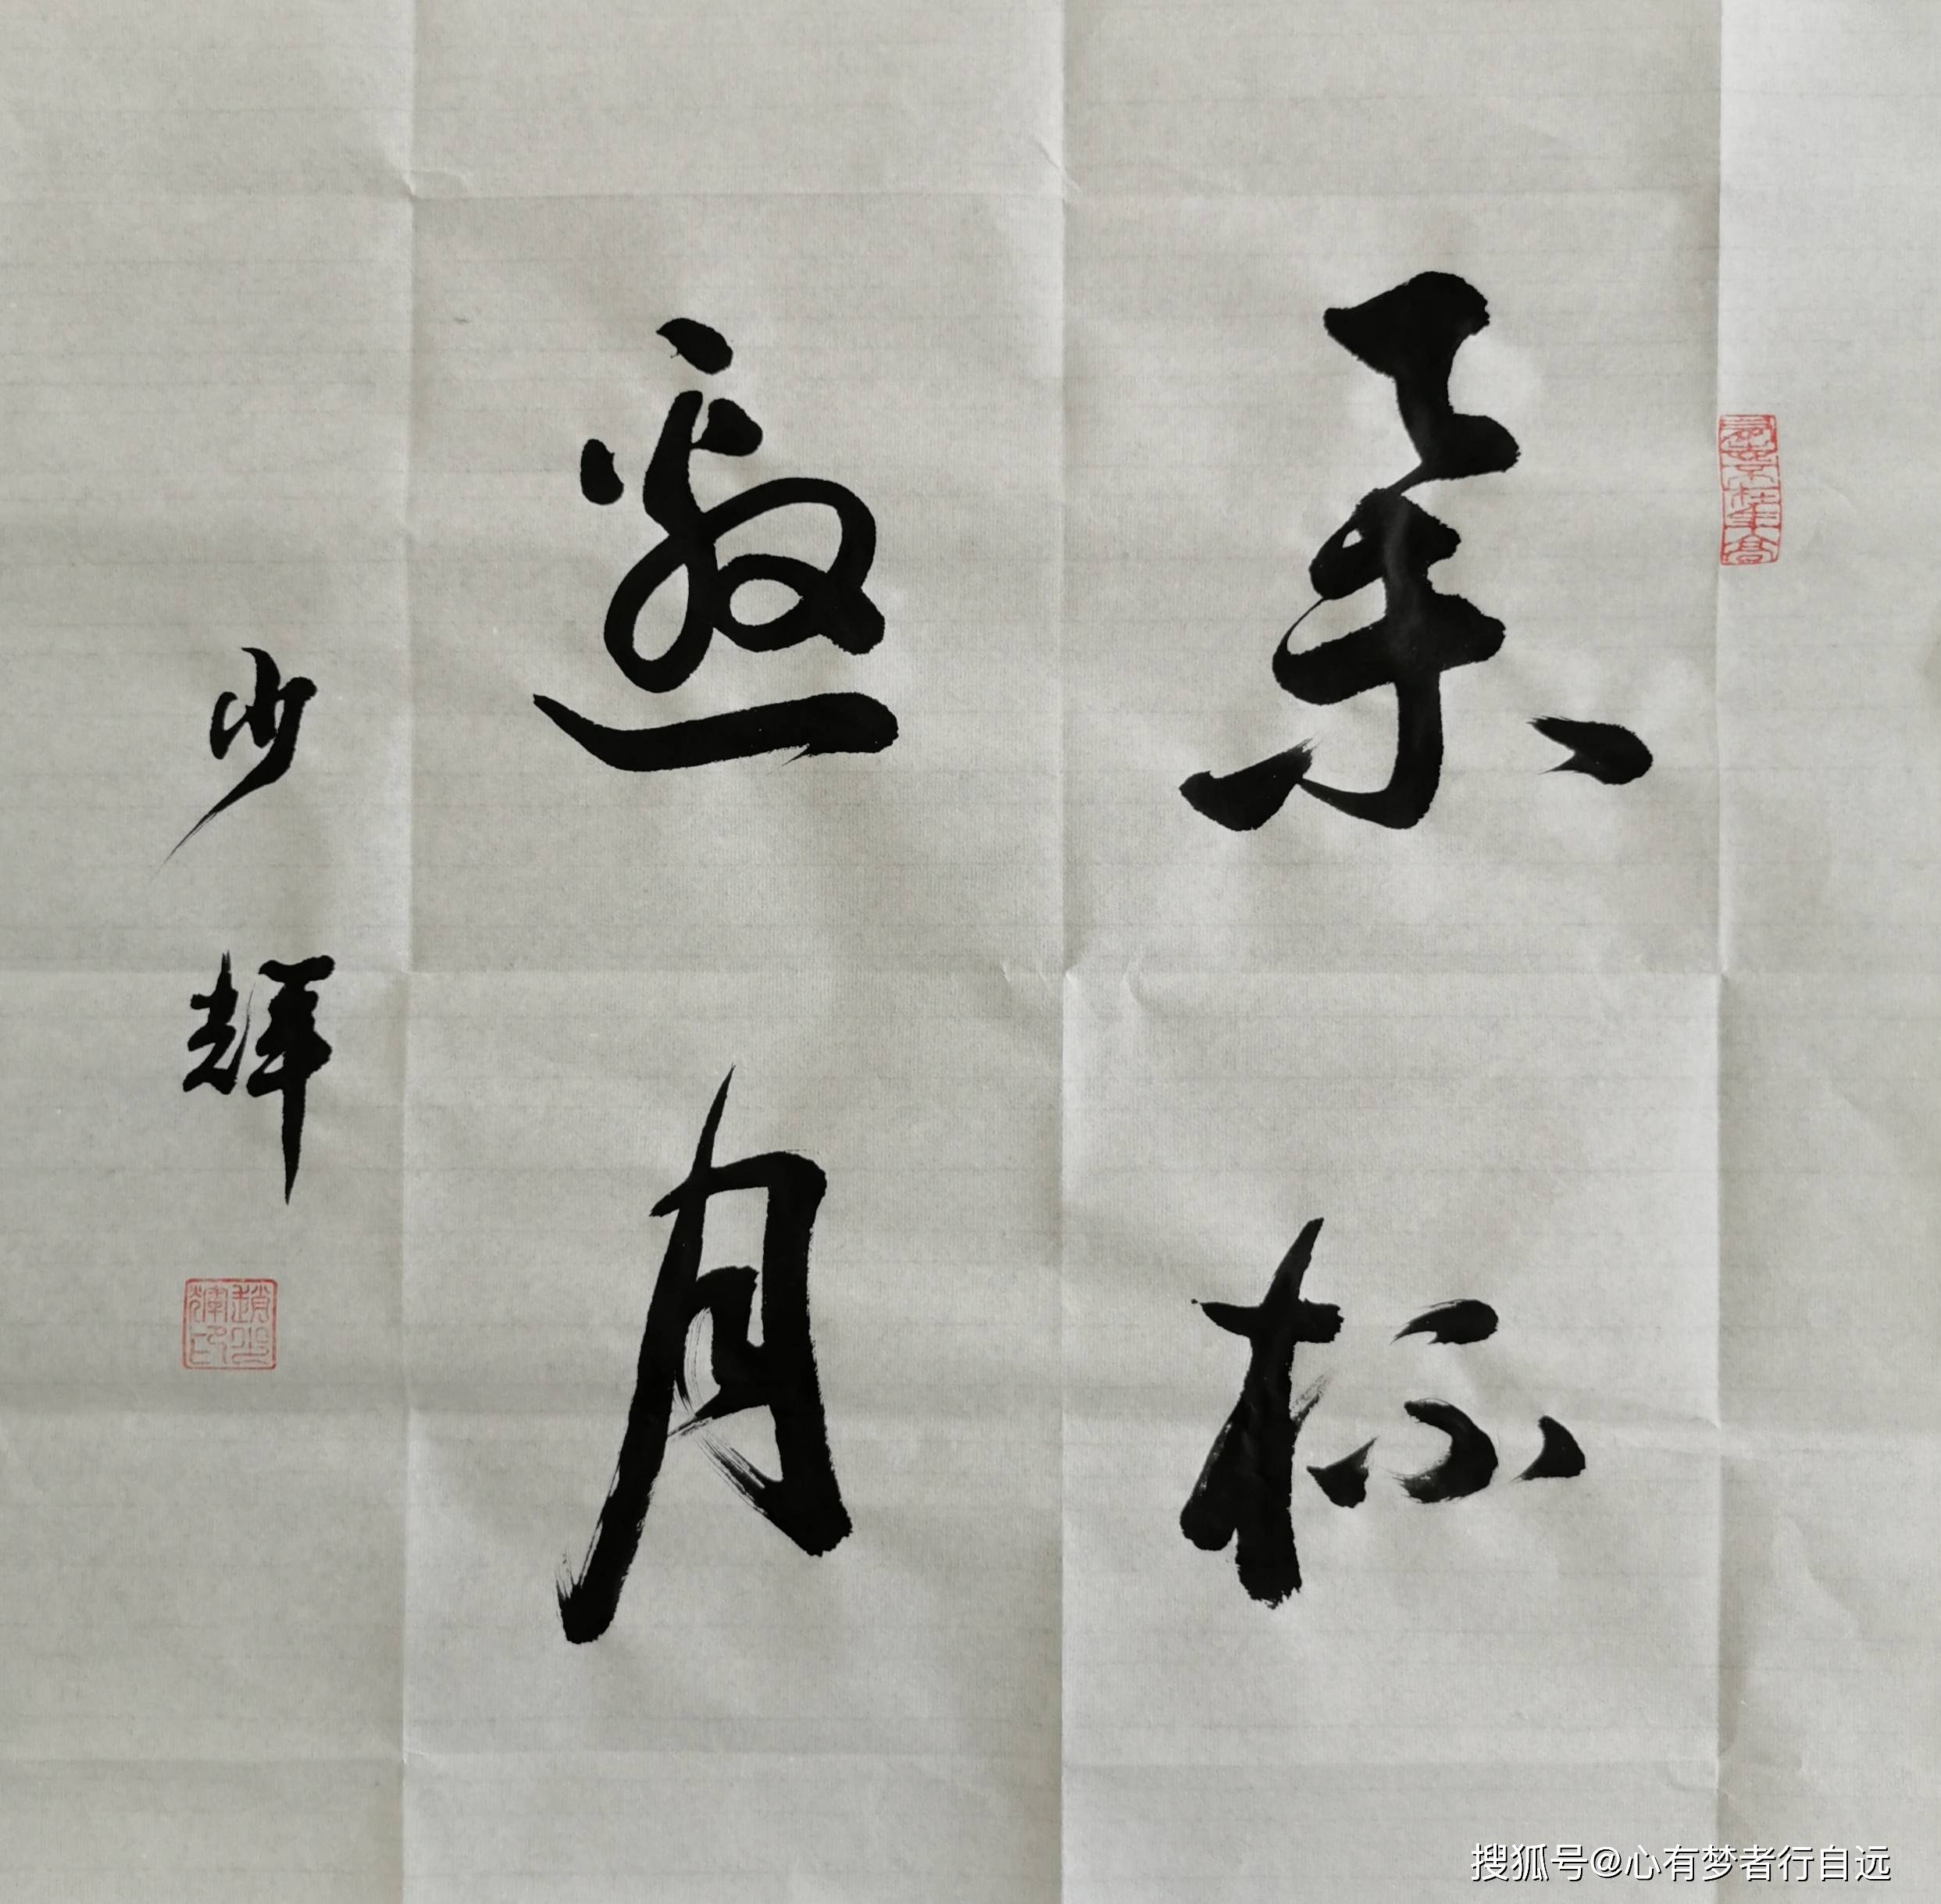 举杯
邀月
少辉
趙少輝印
搜狐号@心有梦者行自远